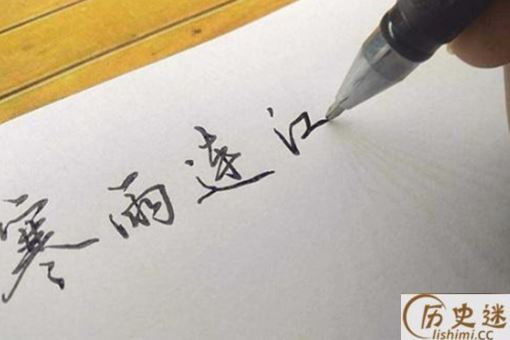 寒雨连江
历史迷
lishimi.cc